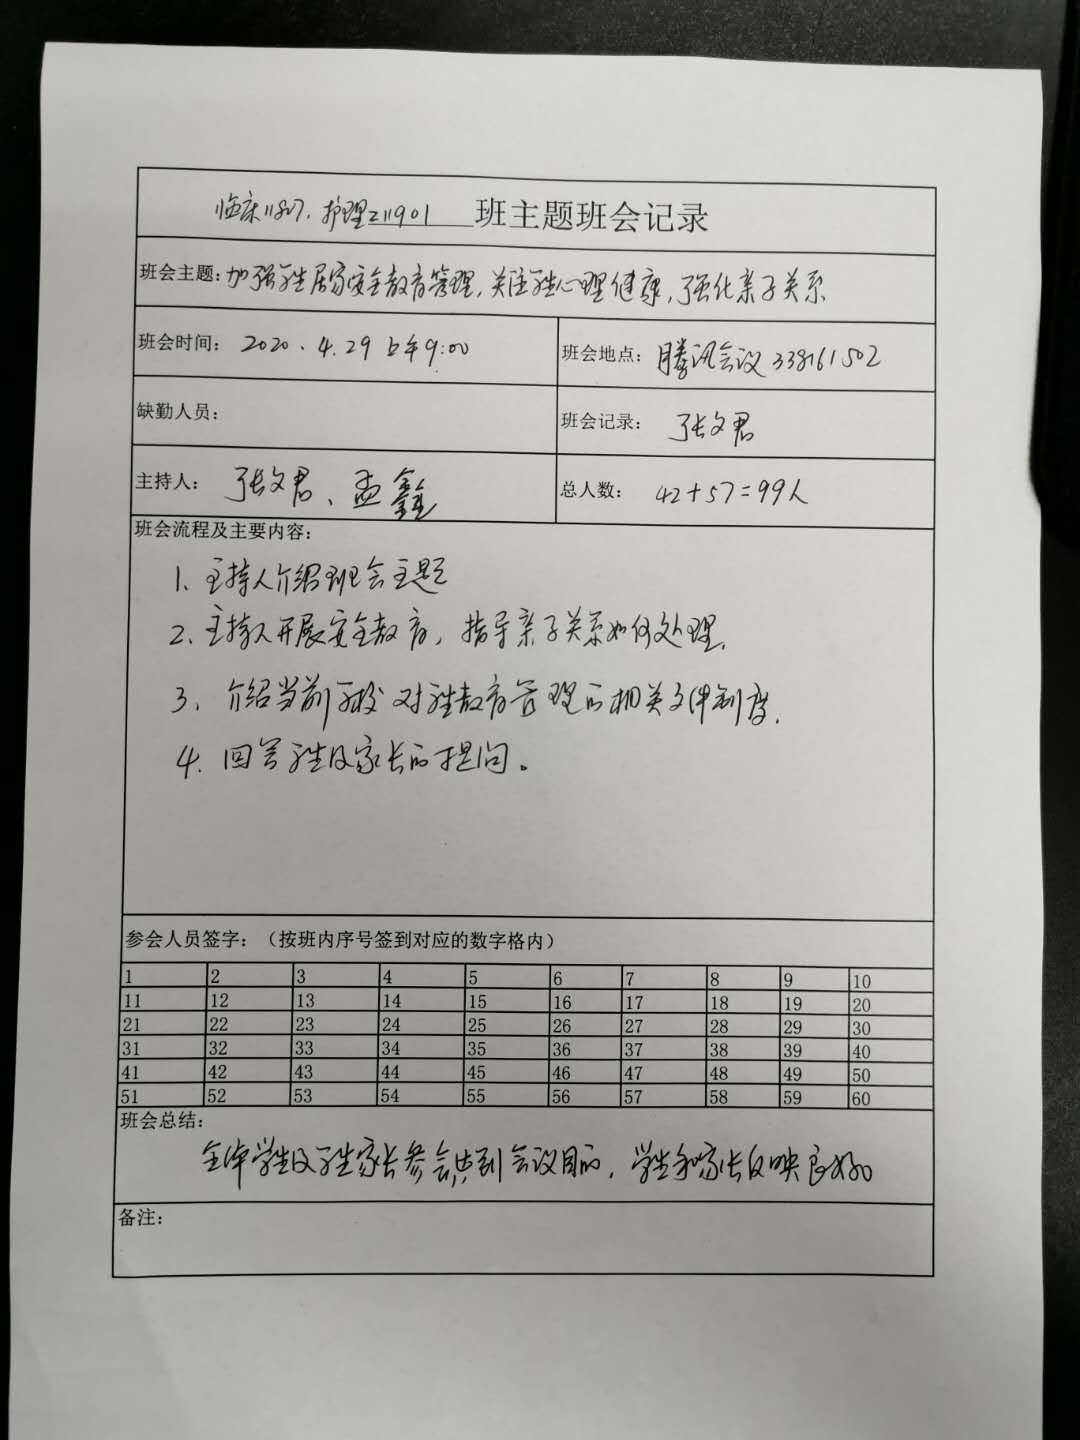 临床11807、护理211901 班主题班会记录
班会主题：加强学生居家安全教育管理，关注学生心理健康，强化亲子关系
班会时间： 2020．4.29 上午9:00 班会地点：腾讯会议 338161502
缺勤人员： 班会记录： 张文君
主持人： 张文君、孟鑫 总人数： 42+57=99人
班会流程及主要内容：
1、主持人介绍班会主题
2、主持人开展安全教育，指导亲子关系如何处理.
3、介绍当前学校对学生教育管理的相关文件制度.
4. 回答学生及家长的提问。
参会人员签字：（按班内序号签到对应的数字格内）
1 2 3 4 5 6 7 8 9 10
11 12 13 14 15 16 17 18 19 20
21 22 23 24 25 26 27 28 29 30
31 32 33 34 35 36 37 38 39 40
41 42 43 44 45 46 47 48 49 50
51 52 53 54 55 56 57 58 59 60
班会总结：
全体学生及学生家长参会，达到会议目的，学生和家长反映良好。
备注：